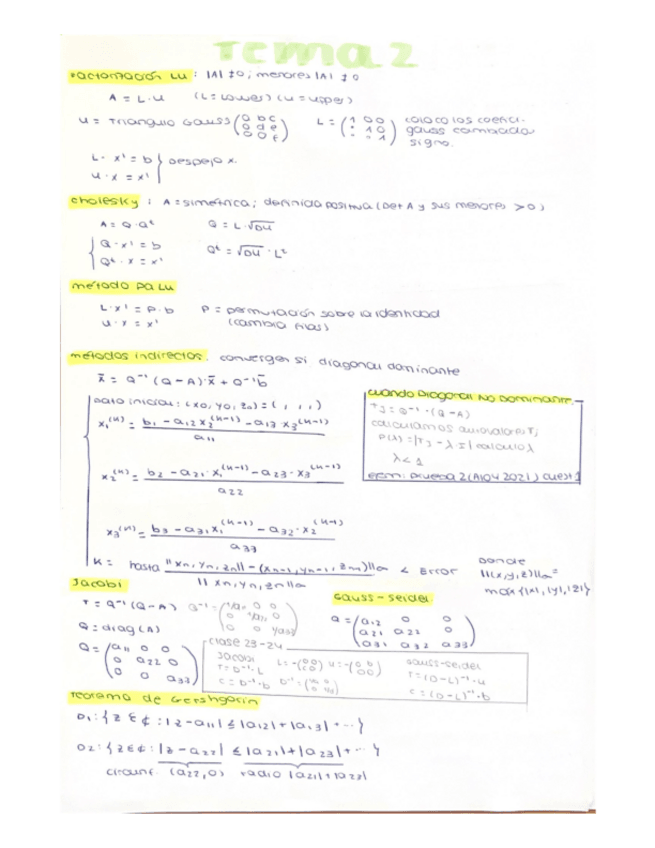 Tema 2
Factorización LU: |A| ≠ 0; menores |A| ≠ 0
A = L·U (L = Lower) (U = upper)
U = Triangulo Gauss (0 b c / 0 d e / 0 0 f) L = (1 0 0 / · 1 0 / · · 1) coloco los coefici-
gauss cambiado
signo.
L · x' = b } Despejo x.
U · x = x'
Cholesky: A = simétrica; definida positiva (Det A y sus menores > 0)
A = Q·Qᵗ Q = L·√DU
Q · x' = b Qᵗ = √DU · Lᵗ
Qᵗ · x = x'
método PALU
L·x' = P·b P = permutación sobre la identidad
U·x = x' (cambia filas)
métodos indirectos. convergen si diagonal dominante
x̄ = Q⁻¹(Q-A)·x̄ + Q⁻¹b̄
Dato inicial: (x0, y0, z0) = ( , , )
x₁⁽ᵏ⁾ = b₁ - a12 x₂⁽ᵏ⁻¹⁾ - a13 · x₃⁽ᵏ⁻¹⁾ / a11
x₂⁽ᵏ⁾ = b₂ - a21 · x₁⁽ᵏ⁻¹⁾ - a23 · x₃⁽ᵏ⁻¹⁾ / a22
x₃⁽ᵏ⁾ = b₃ - a31 x₁⁽ᵏ⁻¹⁾ - a32 · x₂⁽ᵏ⁻¹⁾ / a33
K = hasta ||xn, yn, zn|| - (xn-1, yn-1, zn-1)||∞ / ||xn, yn, zn||∞ < Error
Donde
||(x,y,z)||∞ =
max{|x|, |y|, |z|}
Cuando Diagonal No Dominante.
TJ = Q⁻¹·(Q-A)
calculamos autovalores Tj
P(λ) = |TJ - λ·I| calculo λ
λ < 1
Ejem: prueba 2 (A104 2021) cuest 1
Jacobi
T = Q⁻¹(Q-A) Q⁻¹ = (1/a11 0 0 / 0 1/a22 0 / 0 0 1/a33)
Q = diag(A)
Q = (a11 0 0 / 0 a22 0 / 0 0 a33)
Gauss-Seidel
Q = (a12 0 0 / a21 a22 0 / a31 a32 a33)
Clase 23-24
Jacobi L = -(0 0 / c 0) U = -(0 b / 0 0)
T = D⁻¹·L
C = D⁻¹·b
Gauss-Seidel
T = (D-L)⁻¹·U
C = (D-L)⁻¹·b
Teorema de Gershgorin
D1: {z ∈ ₵: |z - a11| ≤ |a12| + |a13| + ...}
D2: {z ∈ ₵: |z - a22| ≤ |a21| + |a23| + ...}
circunf. (a22, 0) radio |a21| + |a22|